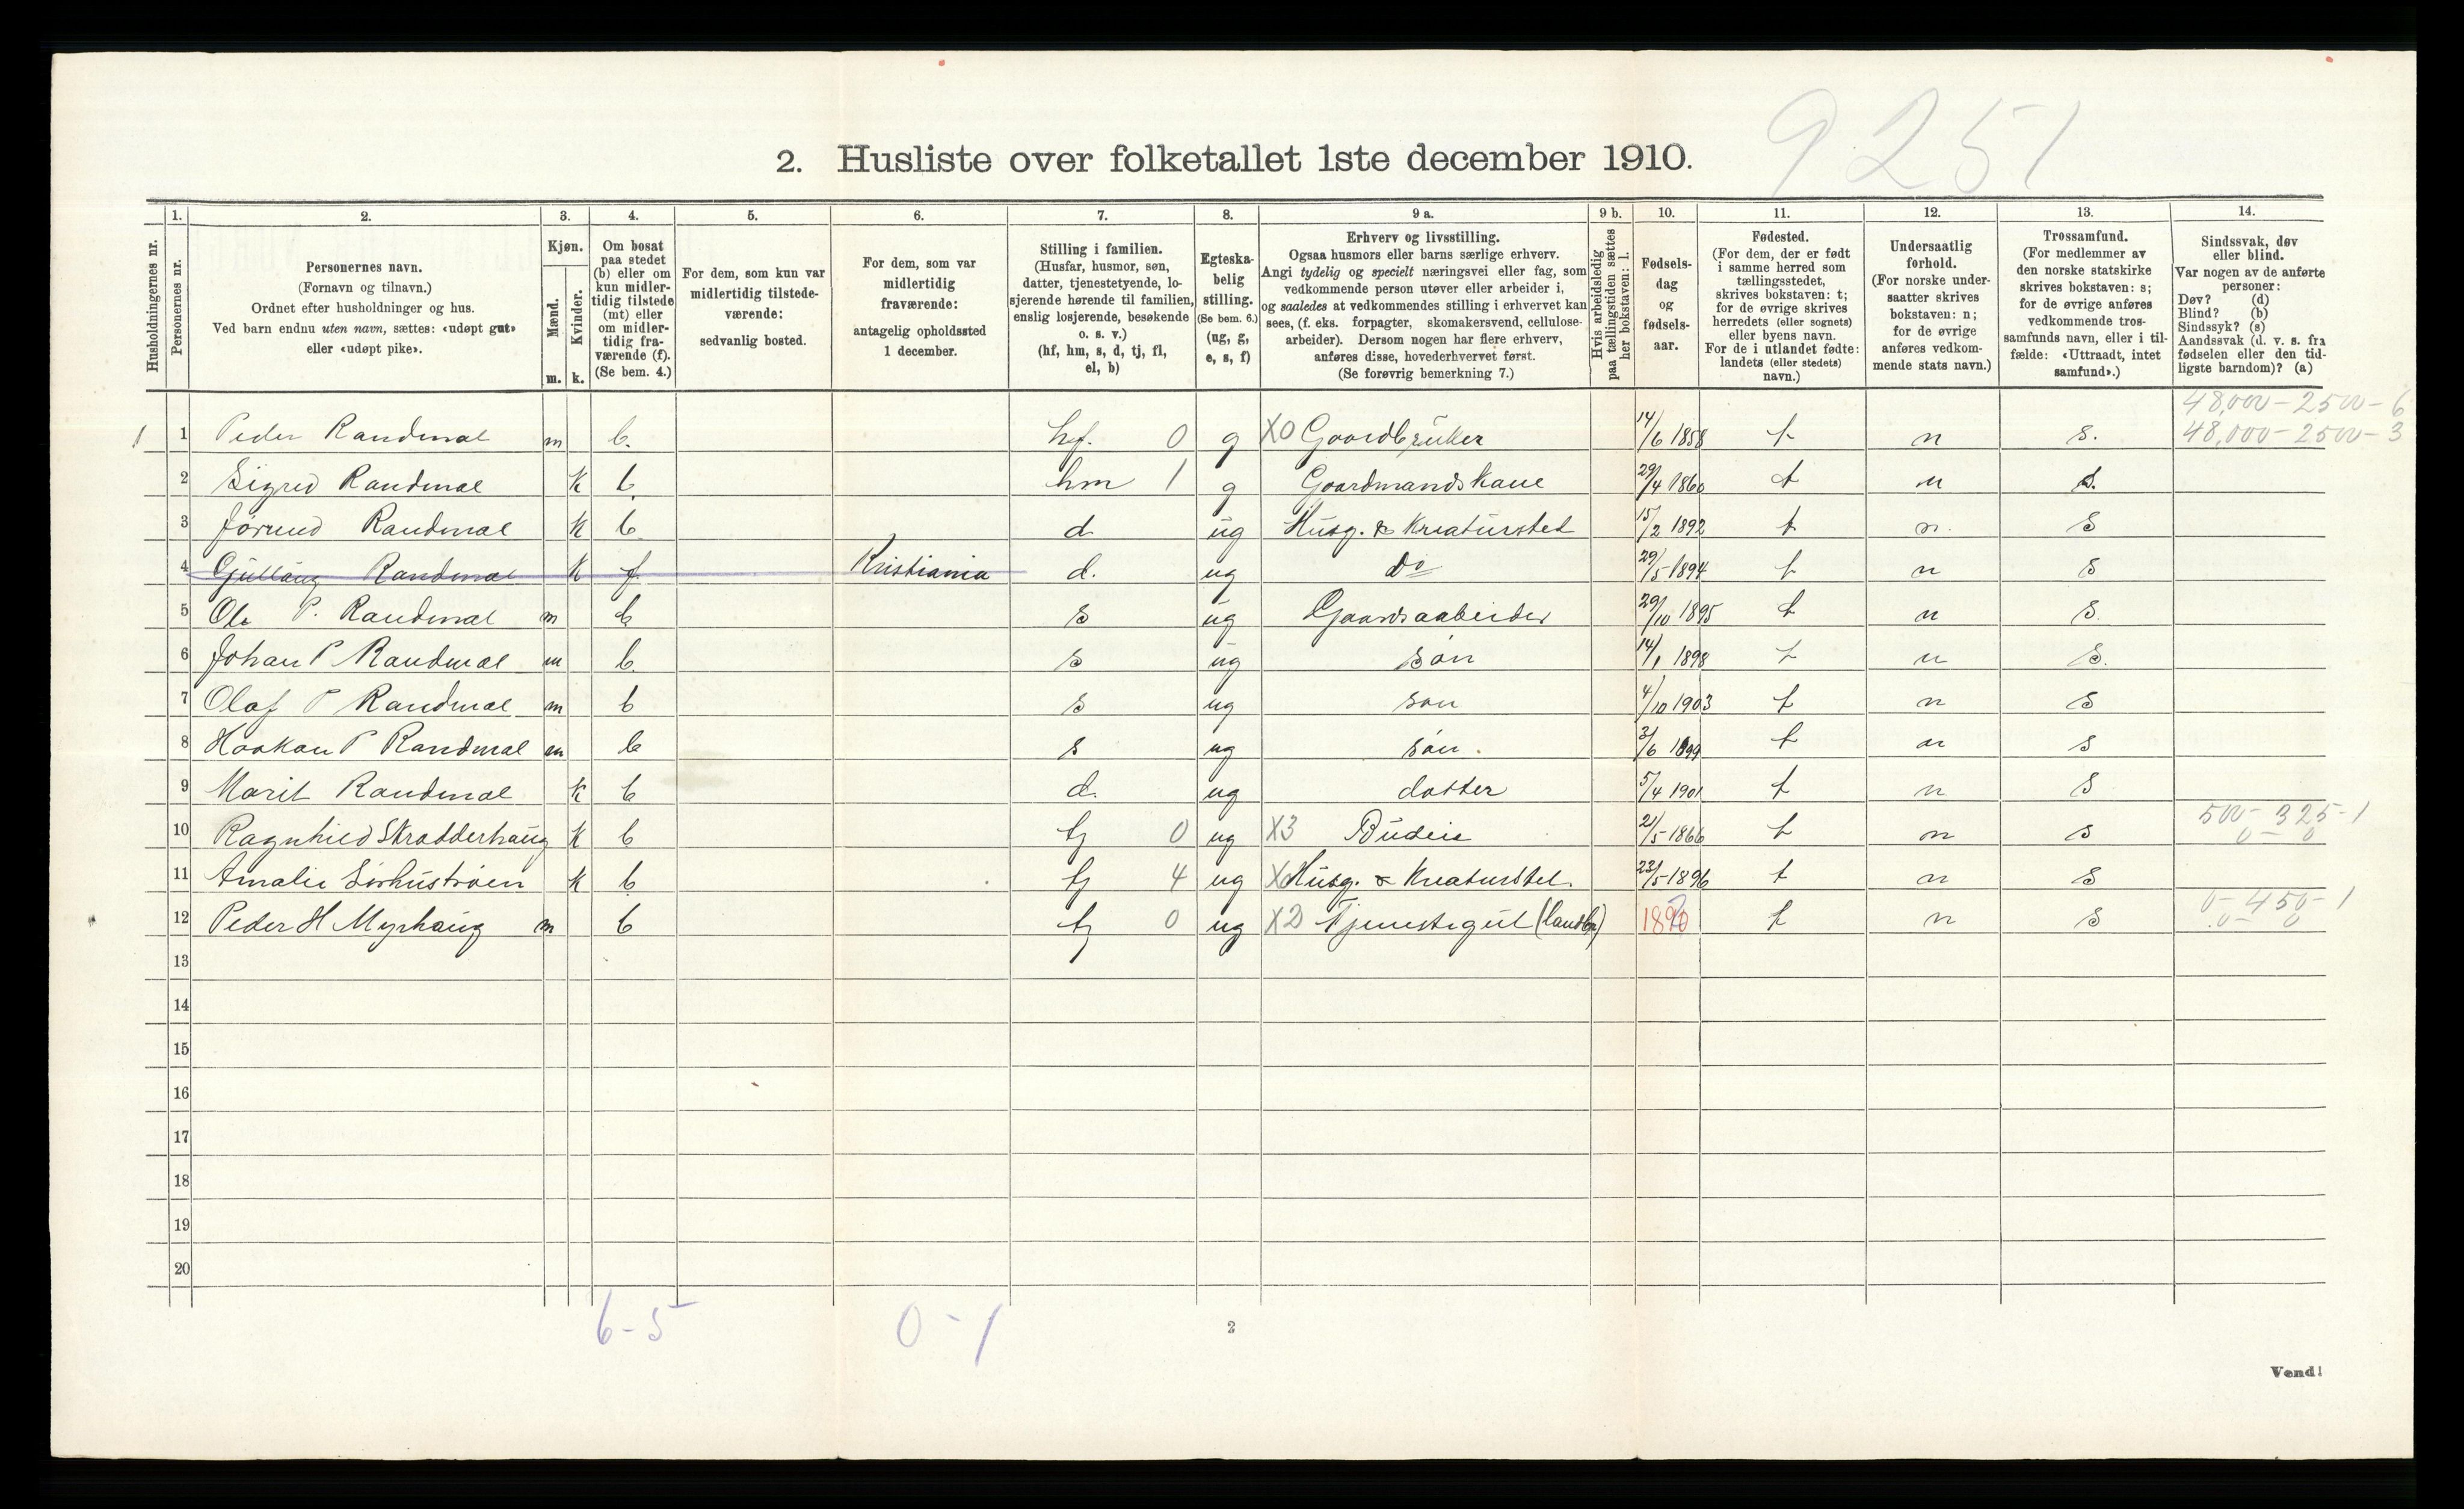 9251
2. Husliste over folketallet 1ste december 1910.
1. 2. 3. 4. 5. 6. 7. 8. 9 a. 9 b. 10. 11. 12. 13. 14.
Husholdningernes nr.
Personernes nr.
Personernes navn.
(Fornavn og tilnavn.)
Ordnet efter husholdninger og hus.
Ved barn endnu uten navn, sættes: «udøpt gut»
eller «udøpt pike».
Kjøn.
Mænd.
Kvinder.
m. k.
Om bosat
paa stedet
(b) eller om
kun midler-
tidig tilstede
(mt) eller
om midler-
tidig fra-
værende (f).
(Se bem. 4.)
For dem, som kun var
midlertidig tilstede-
værende:
sedvanlig bosted.
For dem, som var
midlertidig
fraværende:
antagelig opholdssted
1 december.
Stilling i familien.
(Husfar, husmor, søn,
datter, tjenestetyende, lo-
sjerende hørende til familien,
enslig losjerende, besøkende
o. s. v.)
(hf, hm, s, d, tj, fl,
el, b)
Egteska-
belig
stilling.
(Se bem. 6.)
(ug, g,
e, s, f)
Erhverv og livsstilling.
Ogsaa husmors eller barns særlige erhverv.
Angi tydelig og specielt næringsvei eller fag, som
vedkommende person utøver eller arbeider i,
og saaledes at vedkommendes stilling i erhvervet kan
sees, (f. eks. forpagter, skomakersvend, cellulose-
arbeider). Dersom nogen har flere erhverv,
anføres disse, hovederhvervet først.
(Se forøvrig bemerkning 7.)
Hvis arbeidsledig
paa tællingstiden sættes
her bokstaven: l.
Fødsels-
dag
og
fødsels-
aar.
Fødested.
(For dem, der er født
i samme herred som
tællingsstedet,
skrives bokstaven: t;
for de øvrige skrives
herredets (eller sognets)
eller byens navn.
For de i utlandet fødte:
landets (eller stedets)
navn.)
Undersaatlig
forhold.
(For norske under-
saatter skrives
bokstaven: n;
for de øvrige
anføres vedkom-
mende stats navn.)
Trossamfund.
(For medlemmer av
den norske statskirke
skrives bokstaven: s;
for de øvrige anføres
vedkommende tros-
samfunds navn, eller i til-
fælde: «Uttraadt, intet
samfund».)
Sindssvak, døv
eller blind.
Var nogen av de anførte
personer:
Døv? (d)
Blind? (b)
Sindssyk? (s)
Aandssvak (d. v. s. fra
fødselen eller den tid-
ligste barndom)? (a)
48,000 - 2500 - 6
1 1 Peder Randmæl m b. hf. 0 g X0 Gaardbruker 14/6 1858 t n s. 48,000 - 2500 - 3
2 Sigrid Randmæl k b hm 1 g Gaardmandskone 29/4 1860 t n s.
3 Jørund Randmæl k b d ug Husg. & Kreaturstel 15/2 1892 t n. s
4 Gjullaug Randmæl k f Kristiania d. ug Do 29/5 1894 t n s
5 Ole P. Randmæl m b s ug Gaardsarbeider 29/10 1895 t n s.
6 Johan P Randmæl m b s ug søn 14/1 1898 t n s.
7 Olaf P Randmæl m b s ug søn 4/10 1903 t n s
8 Haakon P Randmæl m b s ug søn. 3/6 1899 t n s
9 Marit Randmæl k b d. ug datter 5/4 1901 t n s
500 - 325 - 1
10 Ragnhild Skradderhaug k b tj 0 ug X3 Budeie 21/5 1866 t n s 0 - 0
11 Amalie Sørhustrøen k b tj 4 ug X Husg. & Kreaturstel. 23/5 1896 t n s
0 - 450 - 1
12 Peder H Myrhaug m b tj 0 ug X2 Tjenestegut (landbr) t n s 0 - 0
13
14
15
16
17
18
19
20
6-5 0-1
2
Vend!